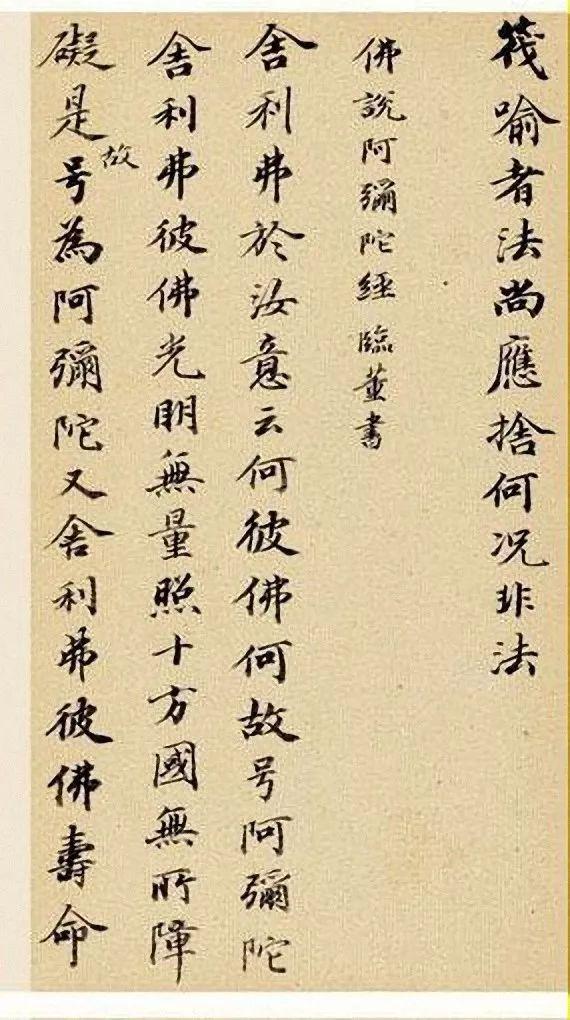 筏喻者法尚應捨何况非法
佛說阿彌陀經臨董書
舍利弗於汝意云何彼佛何故号阿彌陀
舍利弗彼佛光明無量照十方國無所障
礙是故号為阿彌陀又舍利弗彼佛壽命